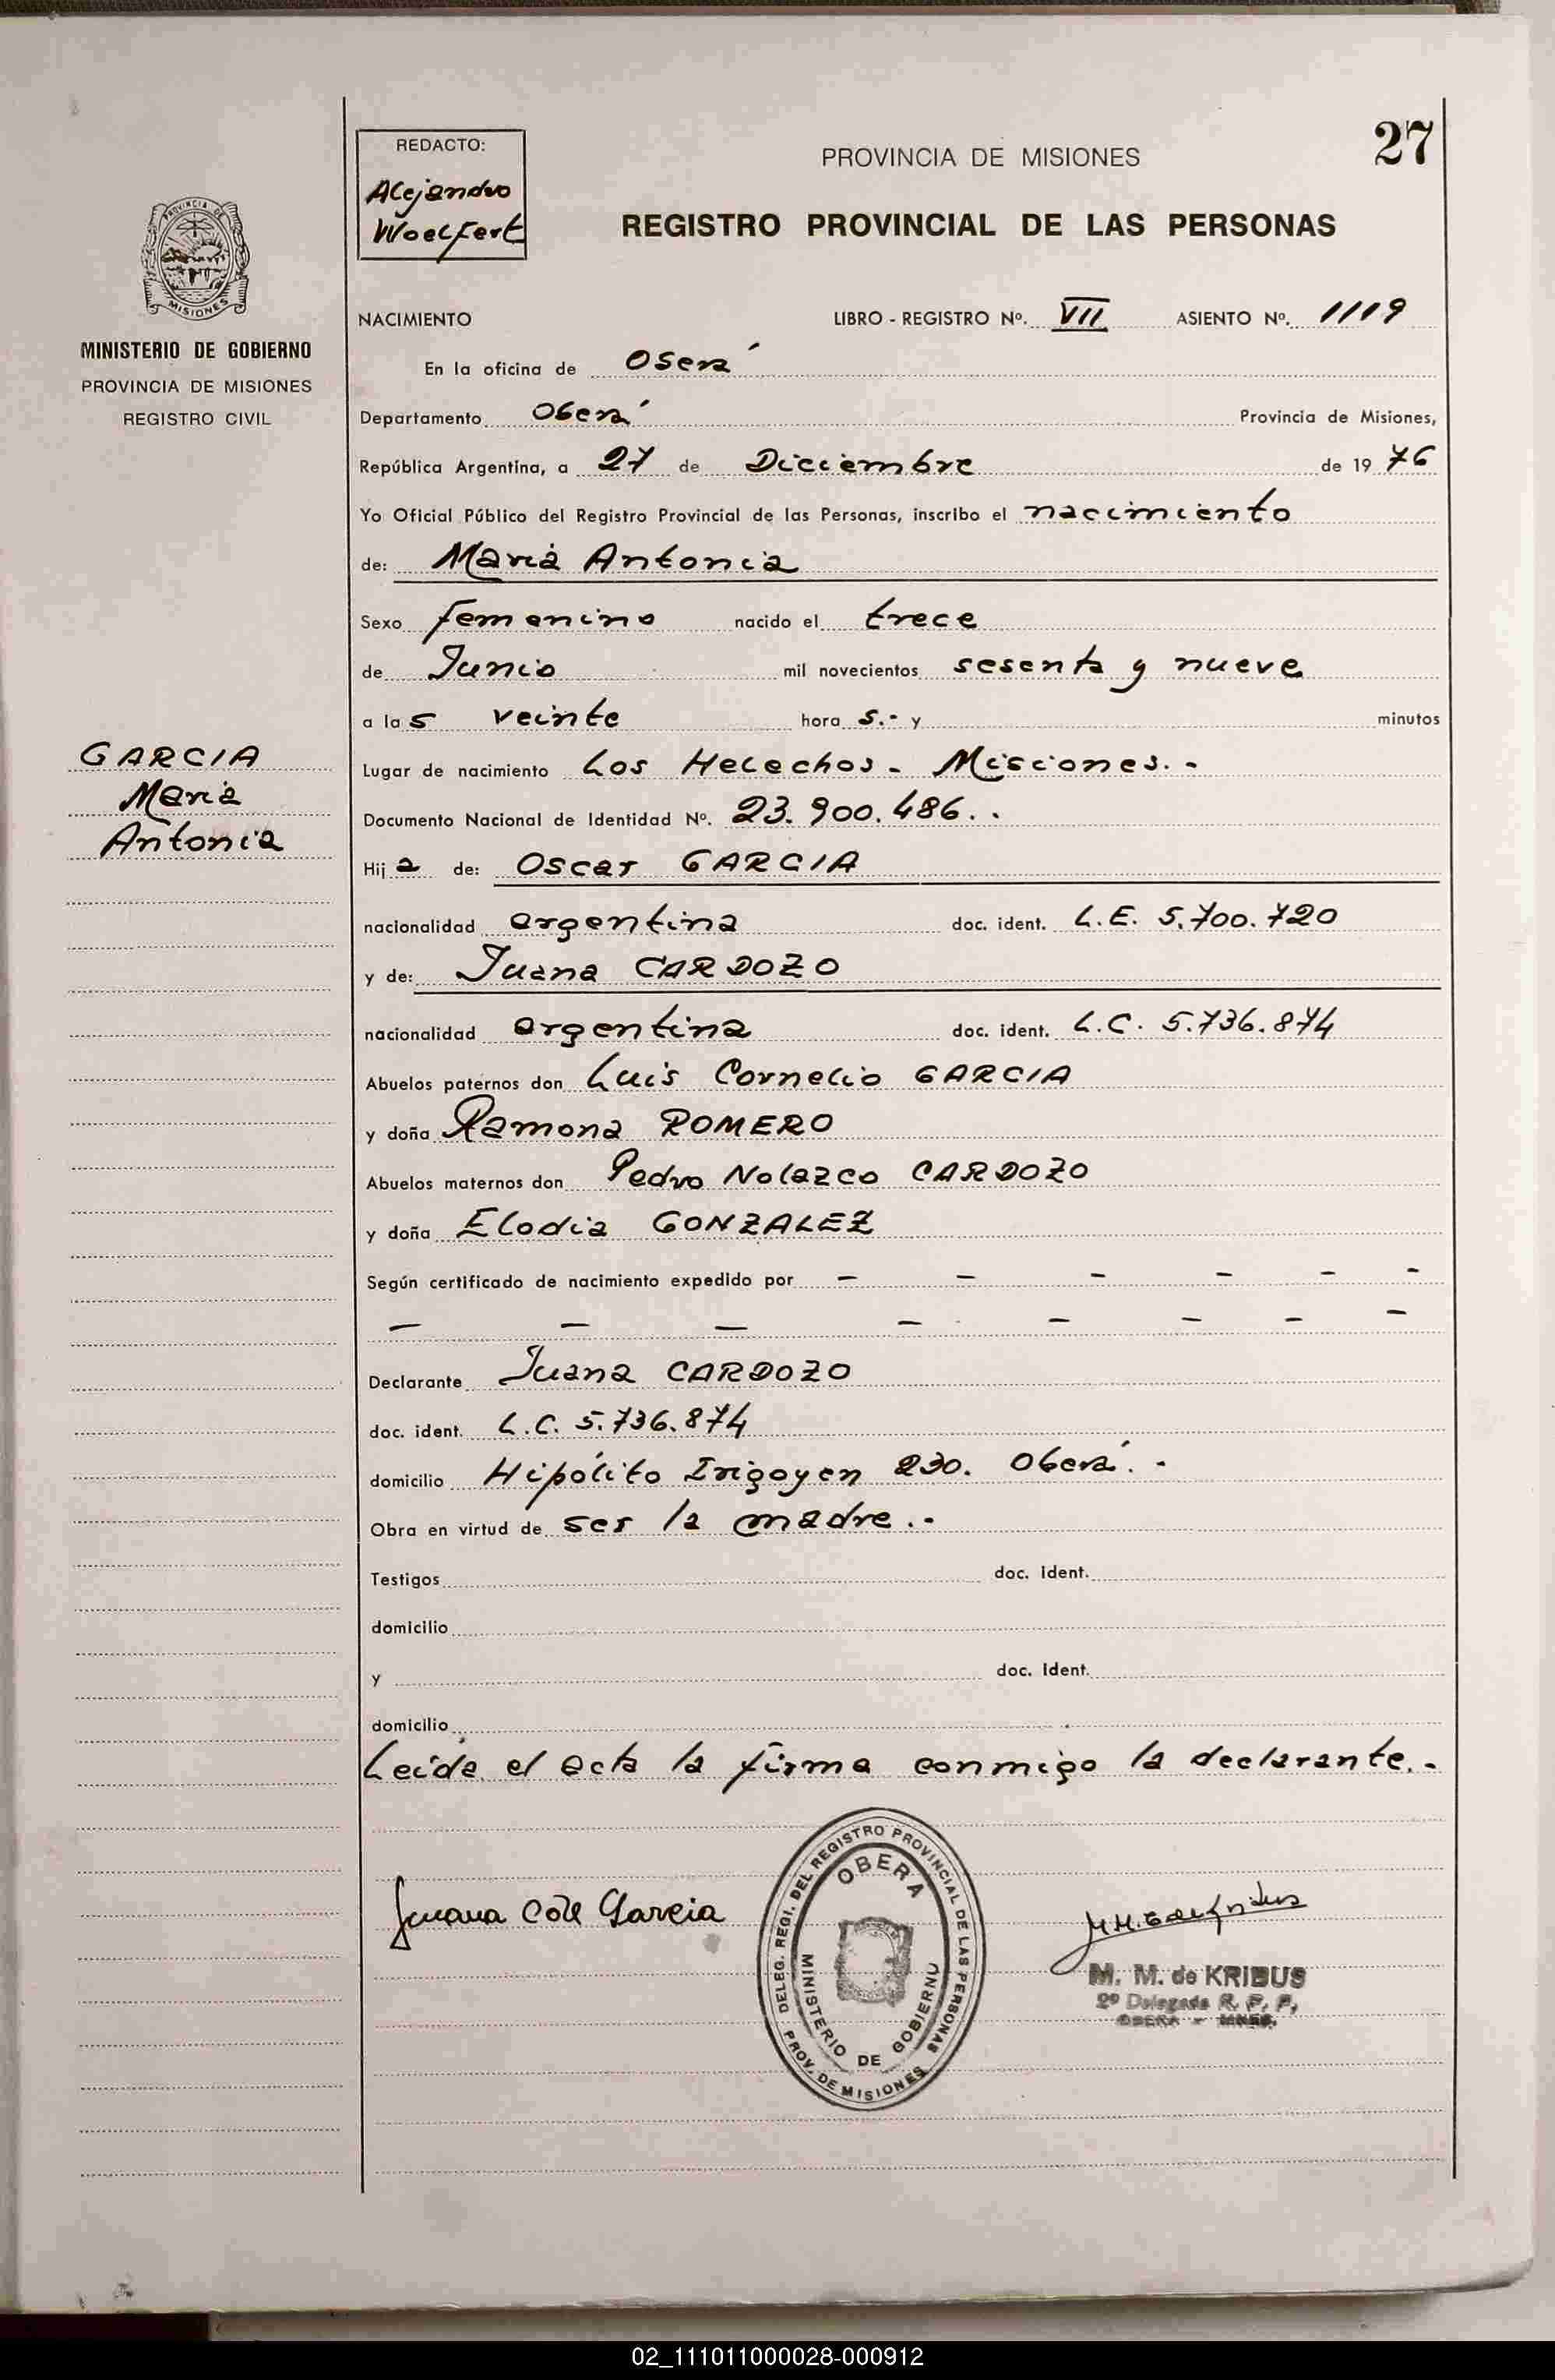 27
REDACTO:
Alejandro
Woelfert
PROVINCIA DE MISIONES
REGISTRO PROVINCIAL DE LAS PERSONAS
PROVINCIA DE
MISIONES
MINISTERIO DE GOBIERNO
PROVINCIA DE MISIONES
REGISTRO CIVIL
NACIMIENTO LIBRO - REGISTRO Nº. VII ASIENTO Nº. 1119
En la oficina de Oberá
Departamento Oberá Provincia de Misiones,
República Argentina, a 27 de Diciembre de 19 76
Yo Oficial Público del Registro Provincial de las Personas, inscribo el nacimiento
de: María Antonia
Sexo femenino nacido el trece
de Junio mil novecientos sesenta y nueve
a la s veinte hora s.- y minutos
GARCIA
María
Antonia
Lugar de nacimiento Los Helechos - Misiones. -
Documento Nacional de Identidad Nº. 23.900.486. .
Hij a de: Oscar GARCIA
nacionalidad argentina doc. ident. L.E. 5.700.720
y de: Juana CARDOZO
nacionalidad argentina doc. ident. L.C. 5.736.874
Abuelos paternos don Luis Cornelio GARCIA
y doña Ramona ROMERO
Abuelos maternos don Pedro Nolazco CARDOZO
y doña Elodia GONZALEZ
Según certificado de nacimiento expedido por — — — — — —
— — — — — — — —
Declarante Juana CARDOZO
doc. ident. L.C. 5.736.874
domicilio Hipólito Irigoyen 230. Oberá. -
Obra en virtud de ser la madre. -
Testigos doc. ident.
domicilio
y doc. ident.
domicilio
Leída el acta la firma conmigo la declarante. -
Juana García
DELEG. REGI. DEL REGISTRO PROVINCIAL DE LAS PERSONAS
OBERA
MINISTERIO DE GOBIERNO
PROV. DE MISIONES
M. M. de KRIBUS
2º Delegada R. P. P.
OBERA - MNES.
02_111011000028-000912